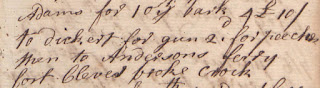 Adams for 107 bark 4£ 10/
to dickert for gun 2d. for peeche
then to Andersons ferry
fort Clever broke Clock